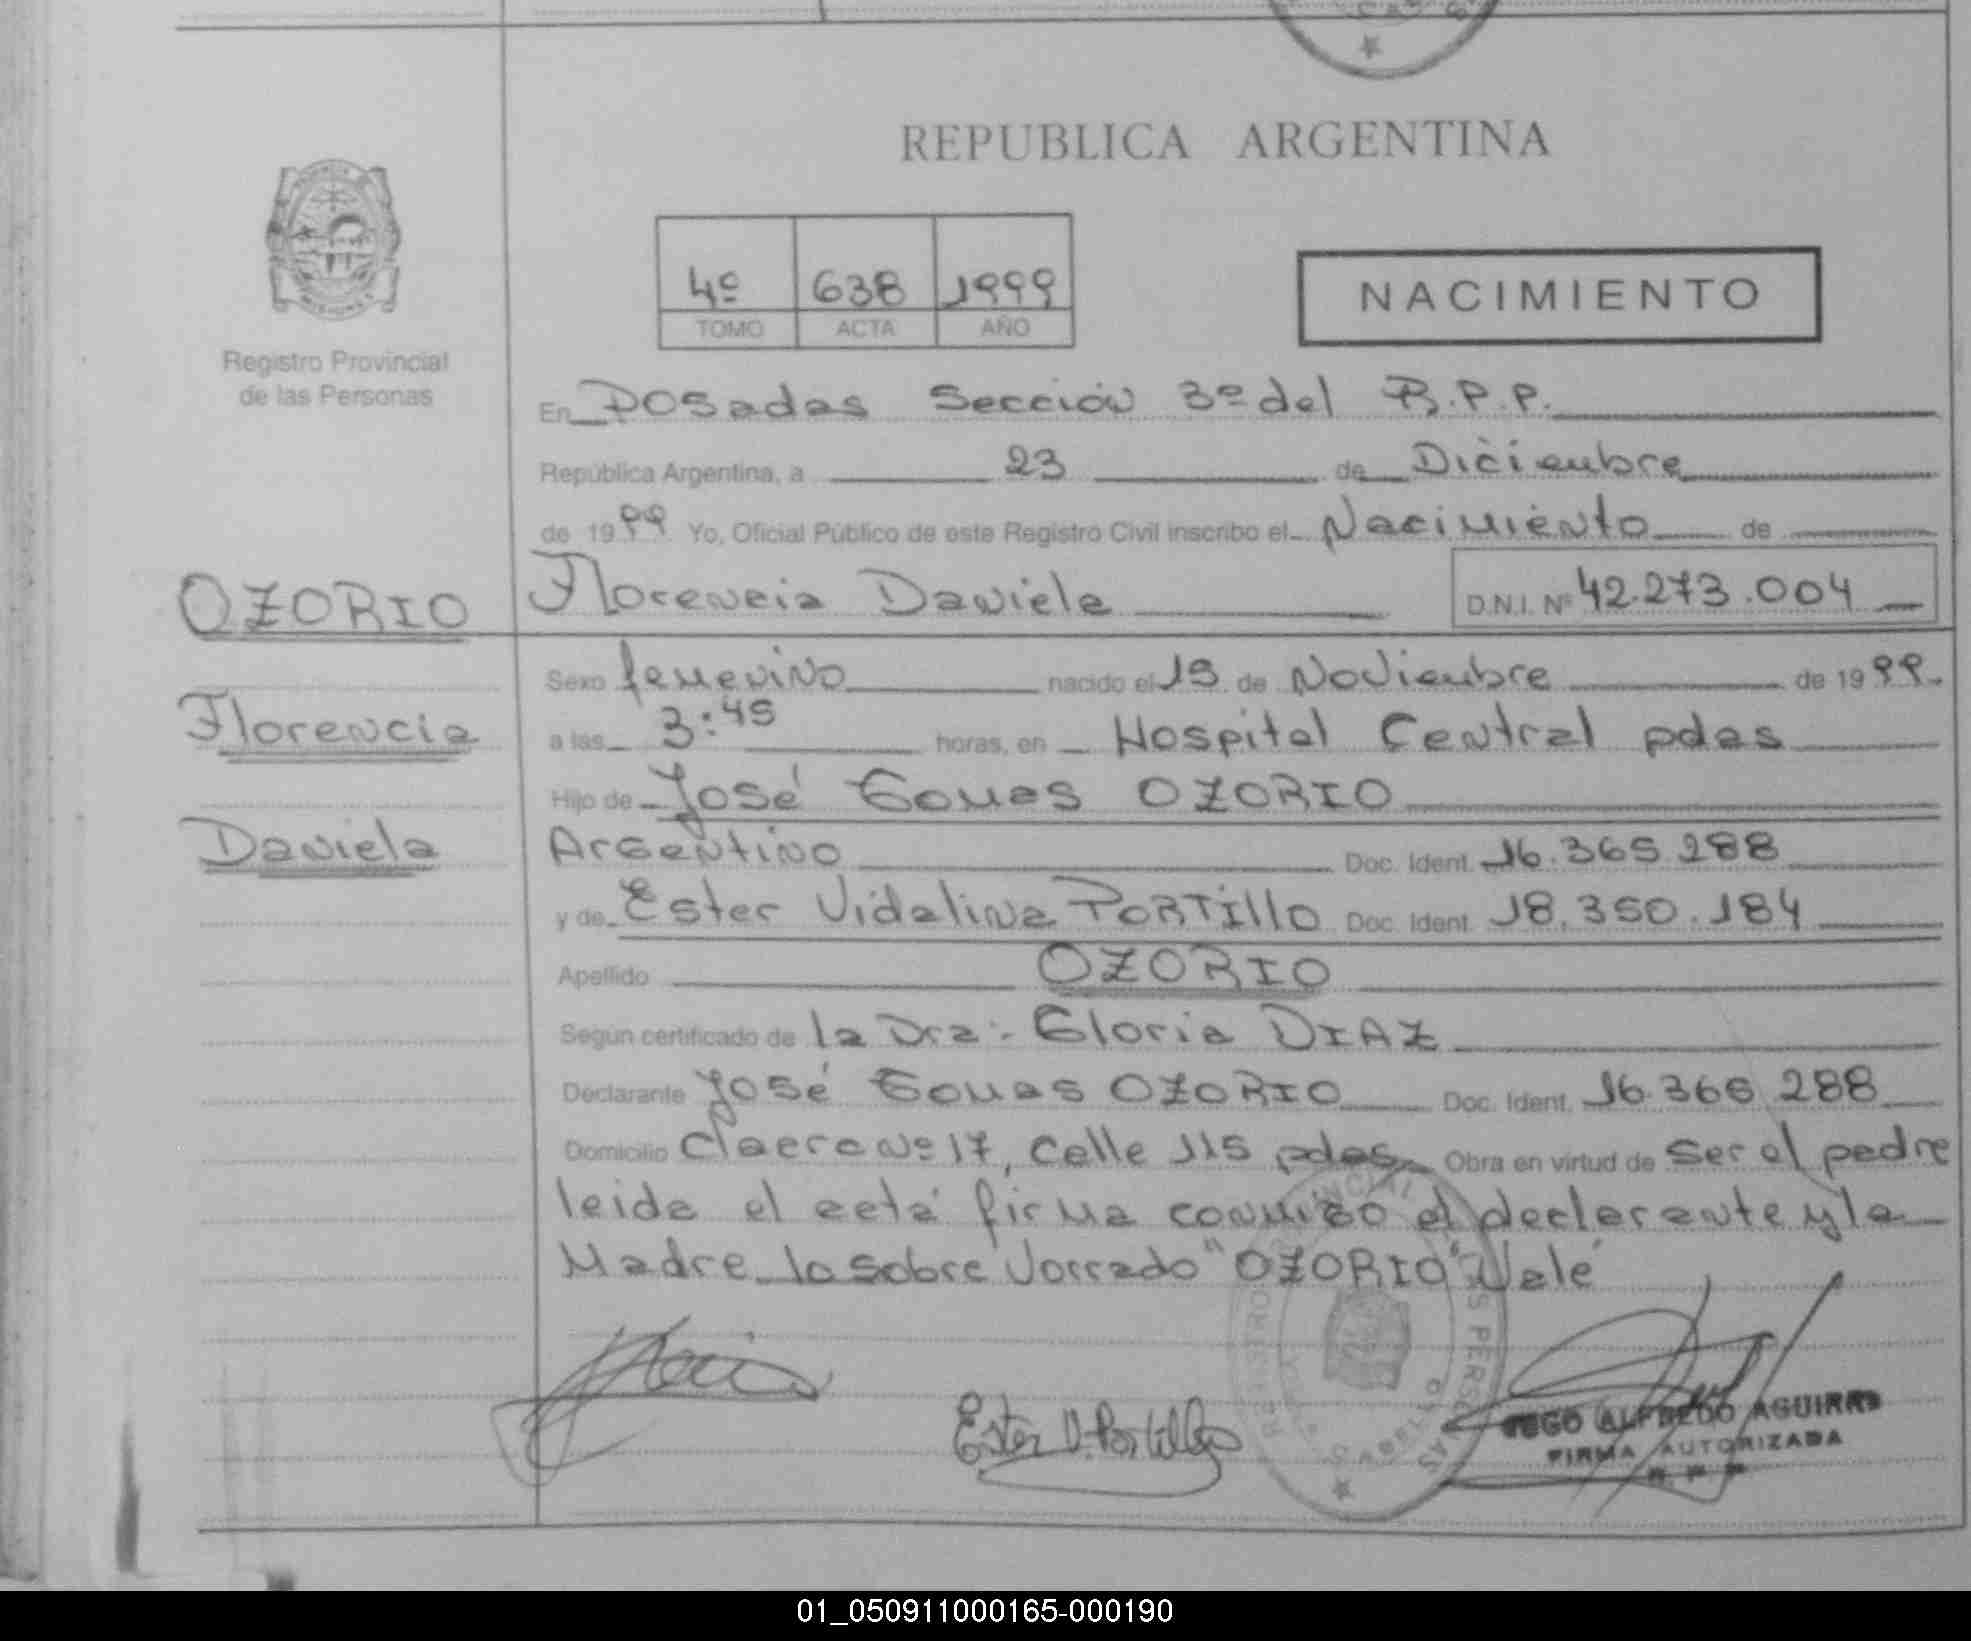 REPUBLICA ARGENTINA
4º 638 1999
TOMO ACTA AÑO
NACIMIENTO
Registro Provincial
de las Personas
En Posadas Sección 3º del R.P.P.
República Argentina, a 23 de Diciembre
de 1999 Yo, Oficial Público de este Registro Civil inscribo el Nacimiento de
OZORIO Florencia Daniela D.N.I. Nº 42.273.004
Sexo femenino nacido el 15 de Noviembre de 1999.
Florencia a las 3:45 horas, en Hospital Central pdas
Hijo de José Gomes OZORIO
Daniela Argentino Doc. Ident. 16.365.288
y de Ester Vidalina PORTIllO Doc. Ident. 18.350.184
Apellido OZORIO
Según certificado de la Dra. Gloria DIAZ
Declarante José Gomes OZORIO Doc. Ident. 16.365.288
Domicilio Nº 17, Calle 115 pdas Obra en virtud de ser el padre
leida el acta firma conmigo el declarante y la
Madre lo sobre Vorrado "OZORIO" Vale
Ester V. Portillo
ALFREDO AGUIRRE
FIRMA AUTORIZADA
R P P
01_050911000165-000190